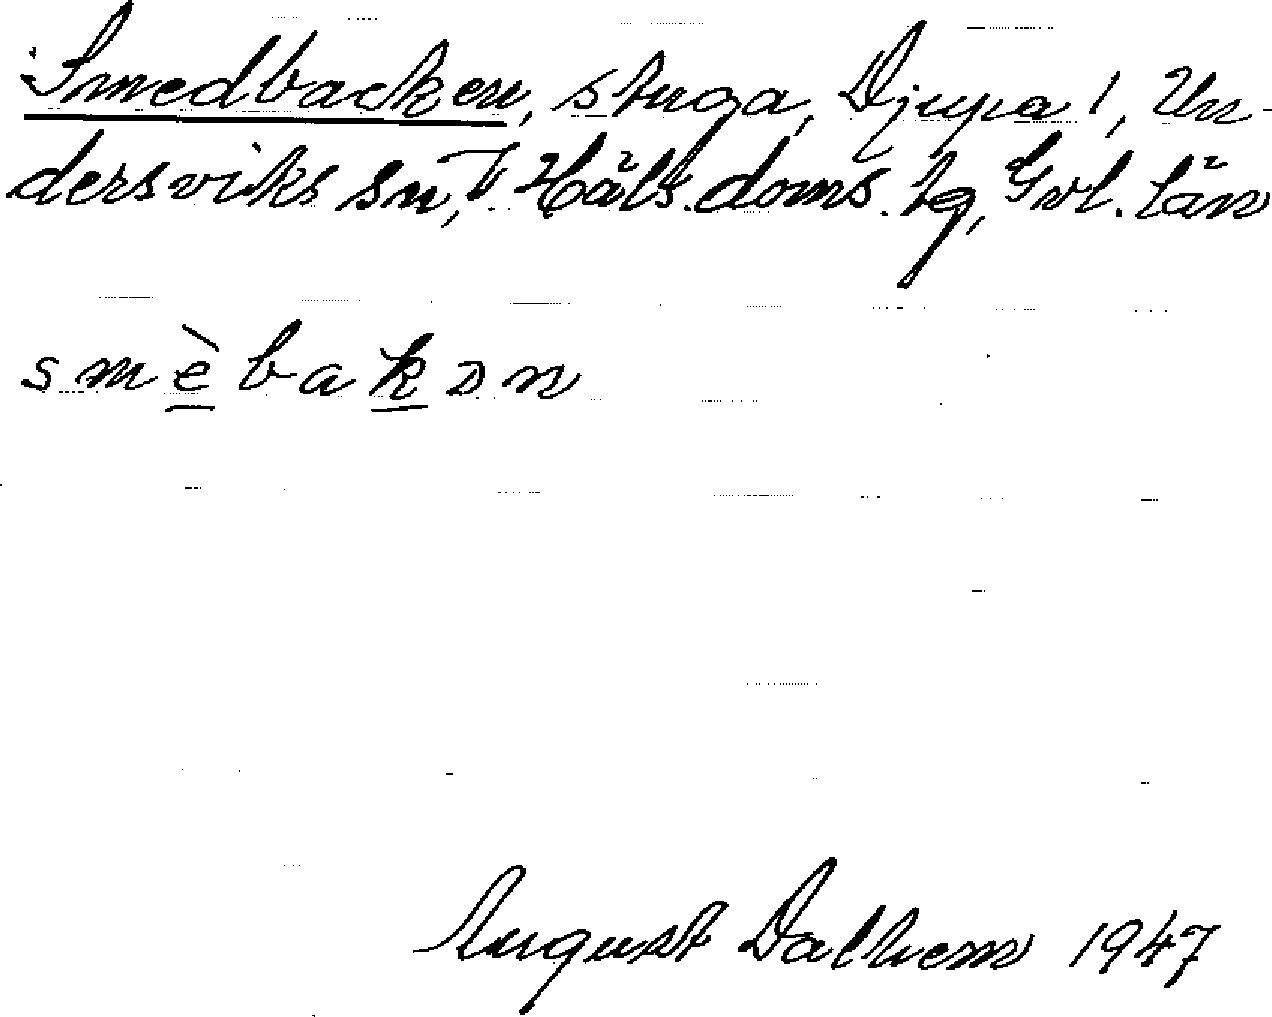 Smedbacken, stuga, Djupa 1, Un-
dersviks sn, V Häls. doms. lg, Gvl. län
smèbakən
August Dalhem 1947